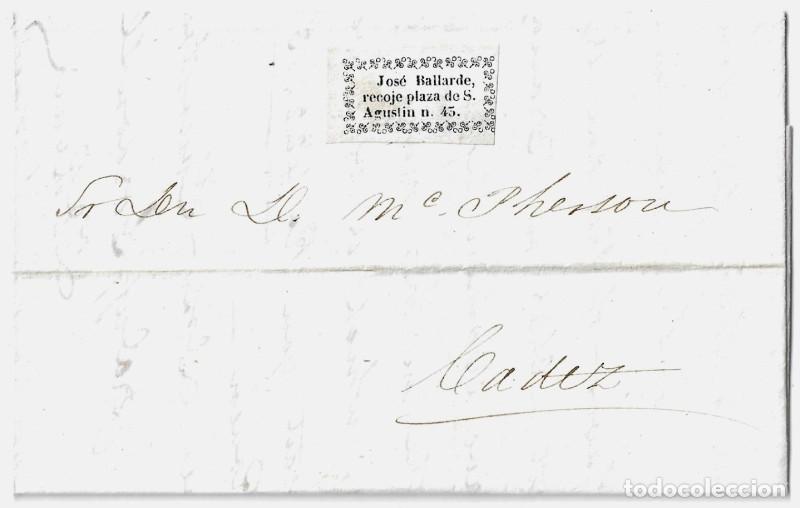 José Ballarde,
recoje plaza de S.
Agustin n. 45.
Sr Dn D. Mc. Pherson
Cadiz
todocoleccion